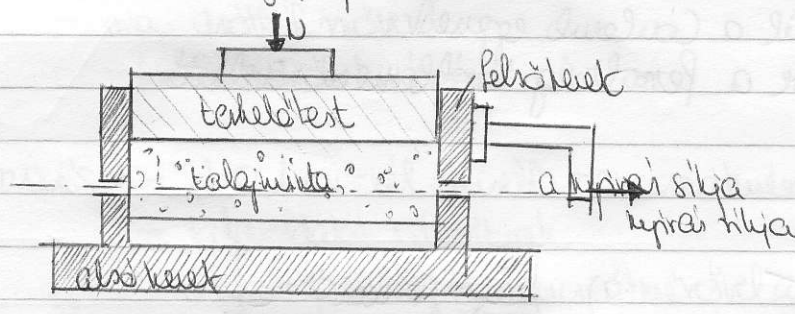 N
felsőkeret
terhelőtest
talajminta
a nyírás síkja
nyírás síkja
alsó keret